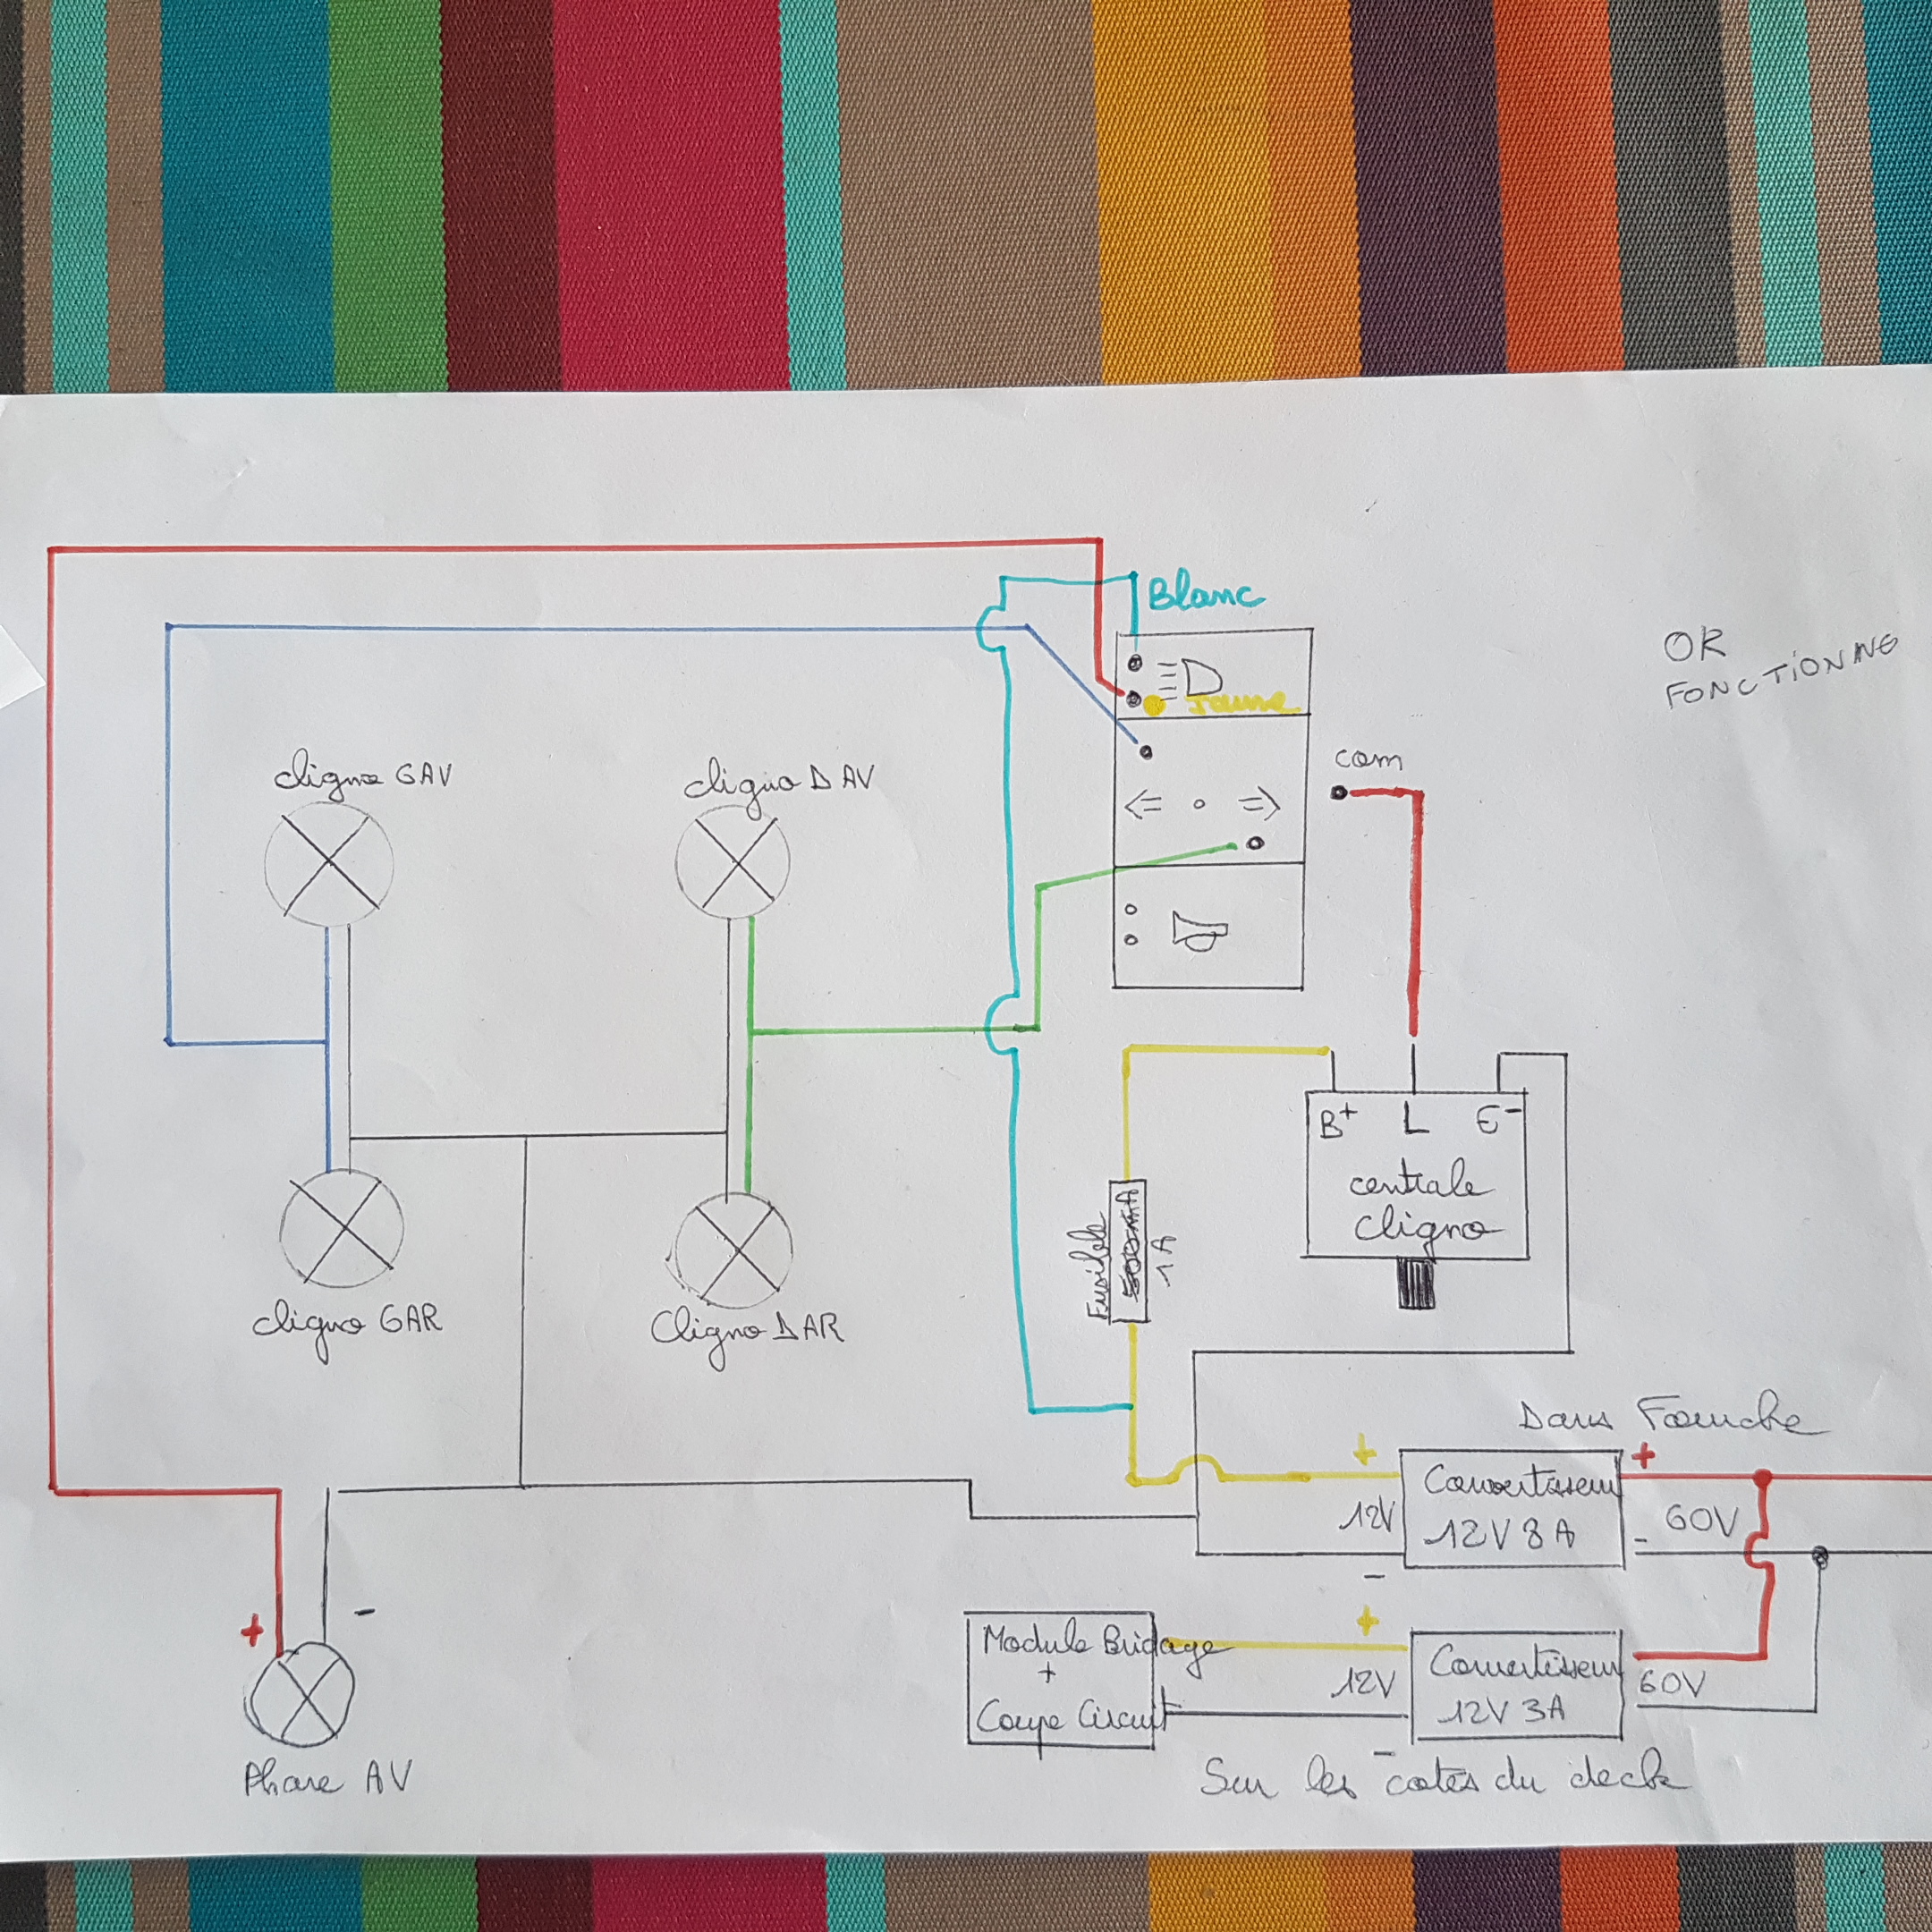 Blanc
OR
FONCTIONING
Jaune
com
cligno GAV
cligno D AV
B+ L E-
centrale
cligno
Fusible
500mA
1A
cligno GAR
Cligno DAR
Dans Fourche
+ +
Convertisseur
12V 8A
12V
60V
- -
+ -
Phare AV
Module Bridage
+
Coupe Circuit
+
12V
-
Convertisseur
12V 3A
60V
Sur les cotés du deck